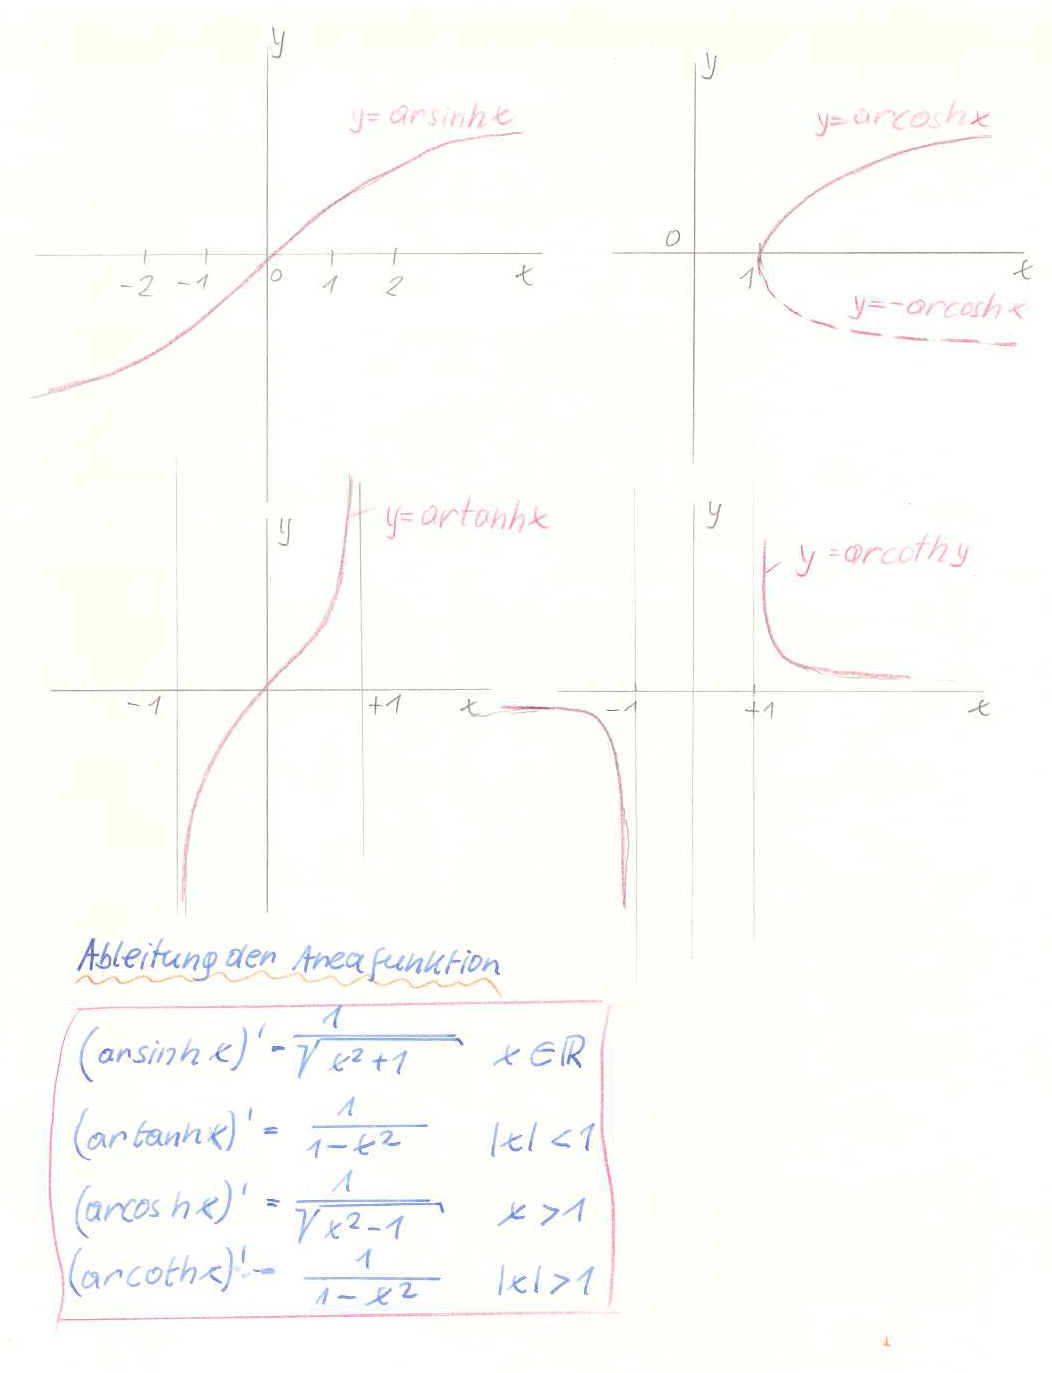 y
y = arsinh x
-2 -1 0 1 2 x
y
y = arcosh x
0
1 x
y = -arcosh x
y
y = artanh x
-1 +1 x
y
y = arcoth y
-1 +1 x
Ableitung der Areafunktion
(arsinh x)' = 1/√(x²+1) x ∈ ℝ
(artanh x)' = 1/(1-x²) |x| < 1
(arcosh x)' = 1/√(x²-1) x > 1
(arcoth x)' = 1/(1-x²) |x| > 1